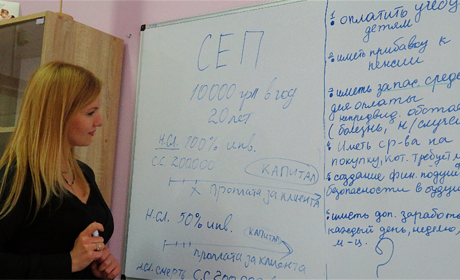 СЕП
10000 грн в год
20 лет
Н.Сл. 100% инв.
С.С 200000
КАПИТАЛ
X проплата за клиента
Н.Сл. 50% инв.
КАПИТАЛ
проплата за клиента
Н.Сл. смерть С.С 200
1 оплатить учебу
детям
2 иметь прибавку к
пенсии
иметь запас средс
для оплаты
непредвид. обстоя
(болезнь, н/случ
Иметь ср-ва на
покупку, кот. требует
создание фин. подуш
безопасности в будущ
иметь доп. заработ
каждый день, неделю,
м-ц.